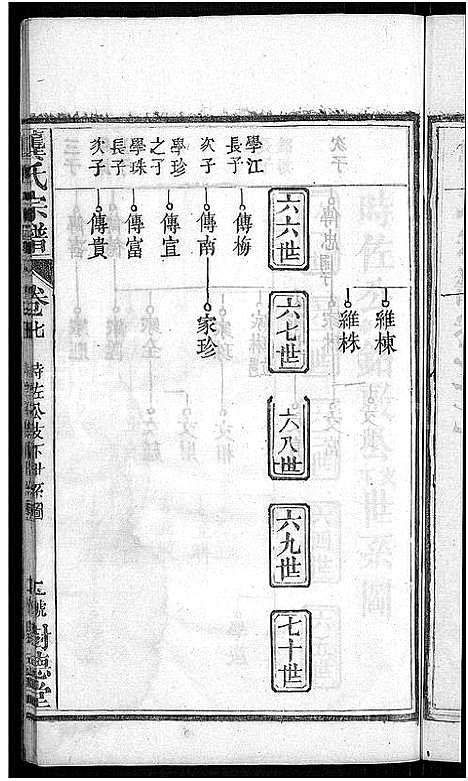 維棟
維株
六六世
六七世
六八世
六九世
七十世
學江
長子
傳楊
次子
傳南
家珍
學珍
之子
傳宣
學珠
長子
傳富
次子
傳貴
龔氏宗譜
卷七
時佐公支下世系圖
樹德堂